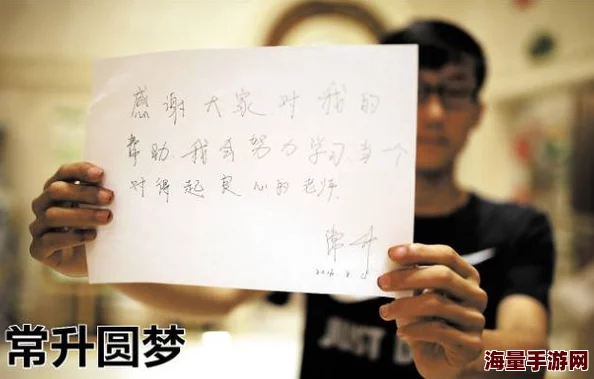 感谢大家对我的
帮助.我会努力学习.当一个
对得起良心的老师.
常升
JUST DO
常升圆梦
海量手游网